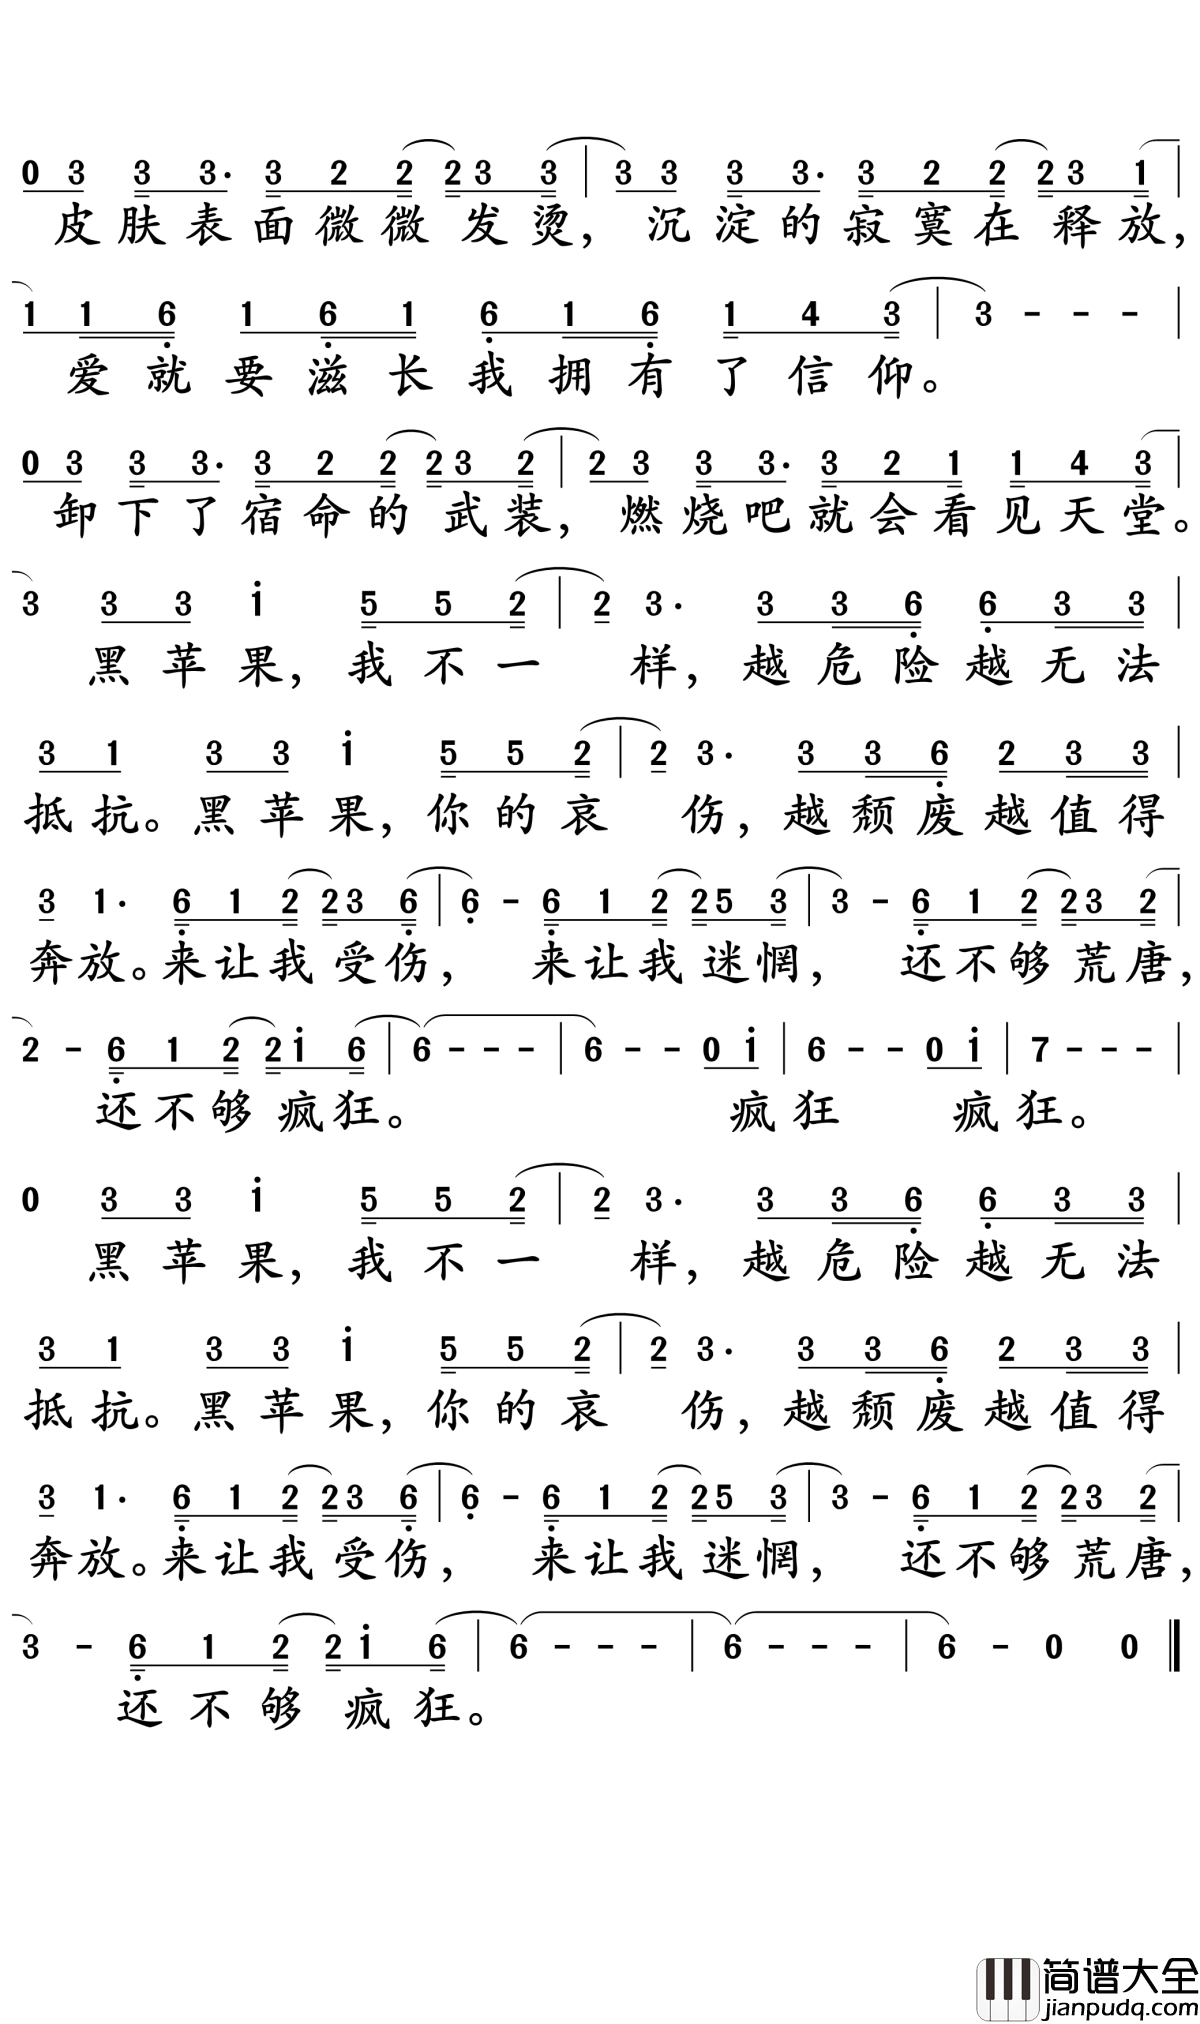 0 3 3 3· 3 2 2 2 3 3 | 3 3 3 3· 3 2 2 2 3 1 |
皮肤表面微微发烫，沉淀的寂寞在释放，
1 1 6 1 6 1 6 1 6 1 4 3 | 3 - - - |
爱就要滋长我拥有了信仰。
0 3 3 3· 3 2 2 2 3 2 | 2 3 3 3· 3 2 1 1 4 3 |
卸下了宿命的武装，燃烧吧就会看见天堂。
3 3 3 i 5 5 2 | 2 3· 3 3 6 6 3 3 |
黑苹果，我不一样，越危险越无法
3 1 3 3 i 5 5 2 | 2 3· 3 3 6 2 3 3 |
抵抗。黑苹果，你的哀伤，越颓废越值得
3 1· 6 1 2 2 3 6 | 6 - 6 1 2 2 5 3 | 3 - 6 1 2 2 3 2 |
奔放。来让我受伤，来让我迷惘，还不够荒唐，
2 - 6 1 2 2 i 6 | 6 - - - | 6 - - 0 i | 6 - - 0 i | 7 - - - |
还不够疯狂。疯狂疯狂。
0 3 3 i 5 5 2 | 2 3· 3 3 6 6 3 3 |
黑苹果，我不一样，越危险越无法
3 1 3 3 i 5 5 2 | 2 3· 3 3 6 2 3 3 |
抵抗。黑苹果，你的哀伤，越颓废越值得
3 1· 6 1 2 2 3 6 | 6 - 6 1 2 2 5 3 | 3 - 6 1 2 2 3 2 |
奔放。来让我受伤，来让我迷惘，还不够荒唐，
3 - 6 1 2 2 i 6 | 6 - - - | 6 - - - | 6 - 0 0 ‖
还不够疯狂。
简谱大全
jianpudq.com